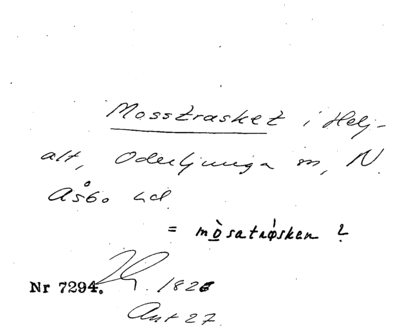 Mosstrasket i Helj-
alt, Oderljunga sn, N.
Åsbo hd
= mòsatrǿsken ?
Nr 7294. 1826
Ant 27